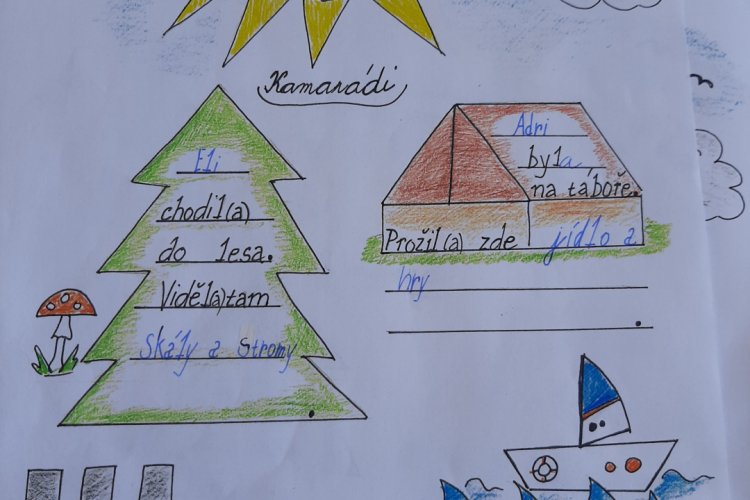 Kamarádi
Eli
chodil(a)
do lesa.
Viděl(a) tam
Skály a Stromy
.
Adri
byla
na táboře.
Prožil(a) zde jídlo a
hry
.